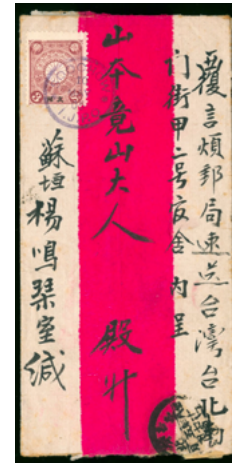 覆言煩郵局速送台灣台北南
门街甲二号友舍 内呈
山本竟山大人 殿升
蘇垣楊鳴琹室缄